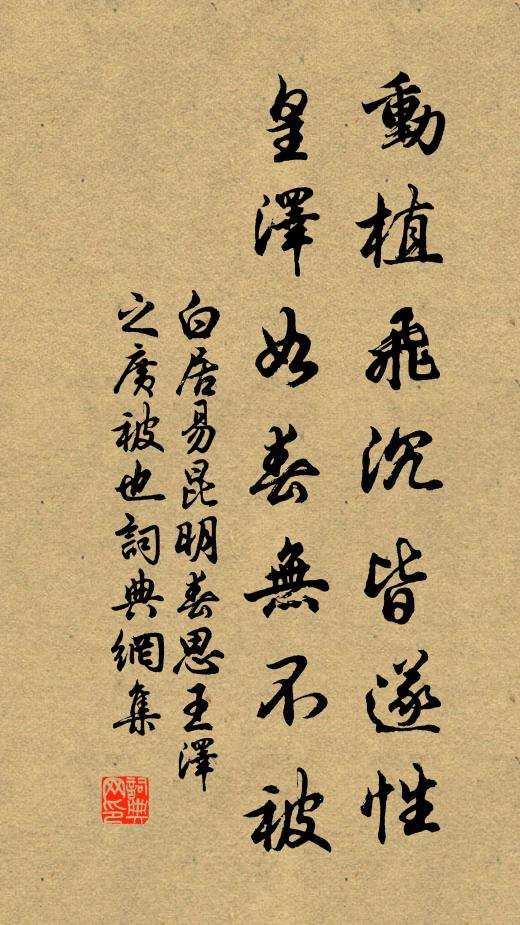 動植飛沉皆遂性
皇澤如春無不被
白居易昆明春思王澤
之廣被也詞典網集
詞典網印